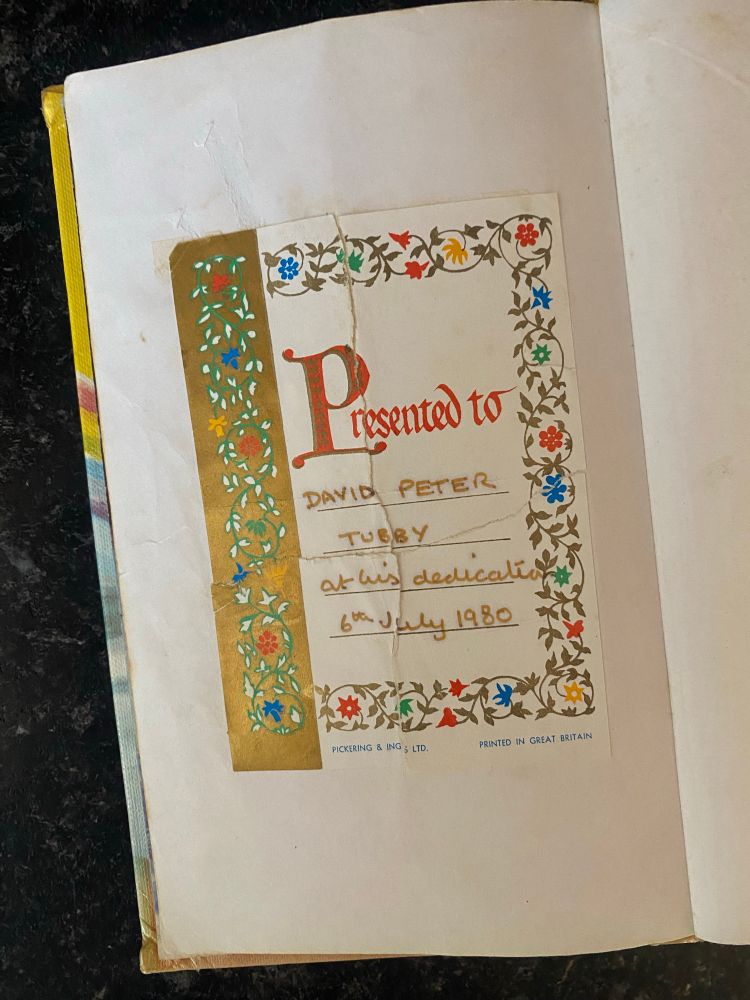 Presented to
DAVID PETER
TUBBY
at his dedication
6th July 1980
PICKERING & INGS LTD. PRINTED IN GREAT BRITAIN